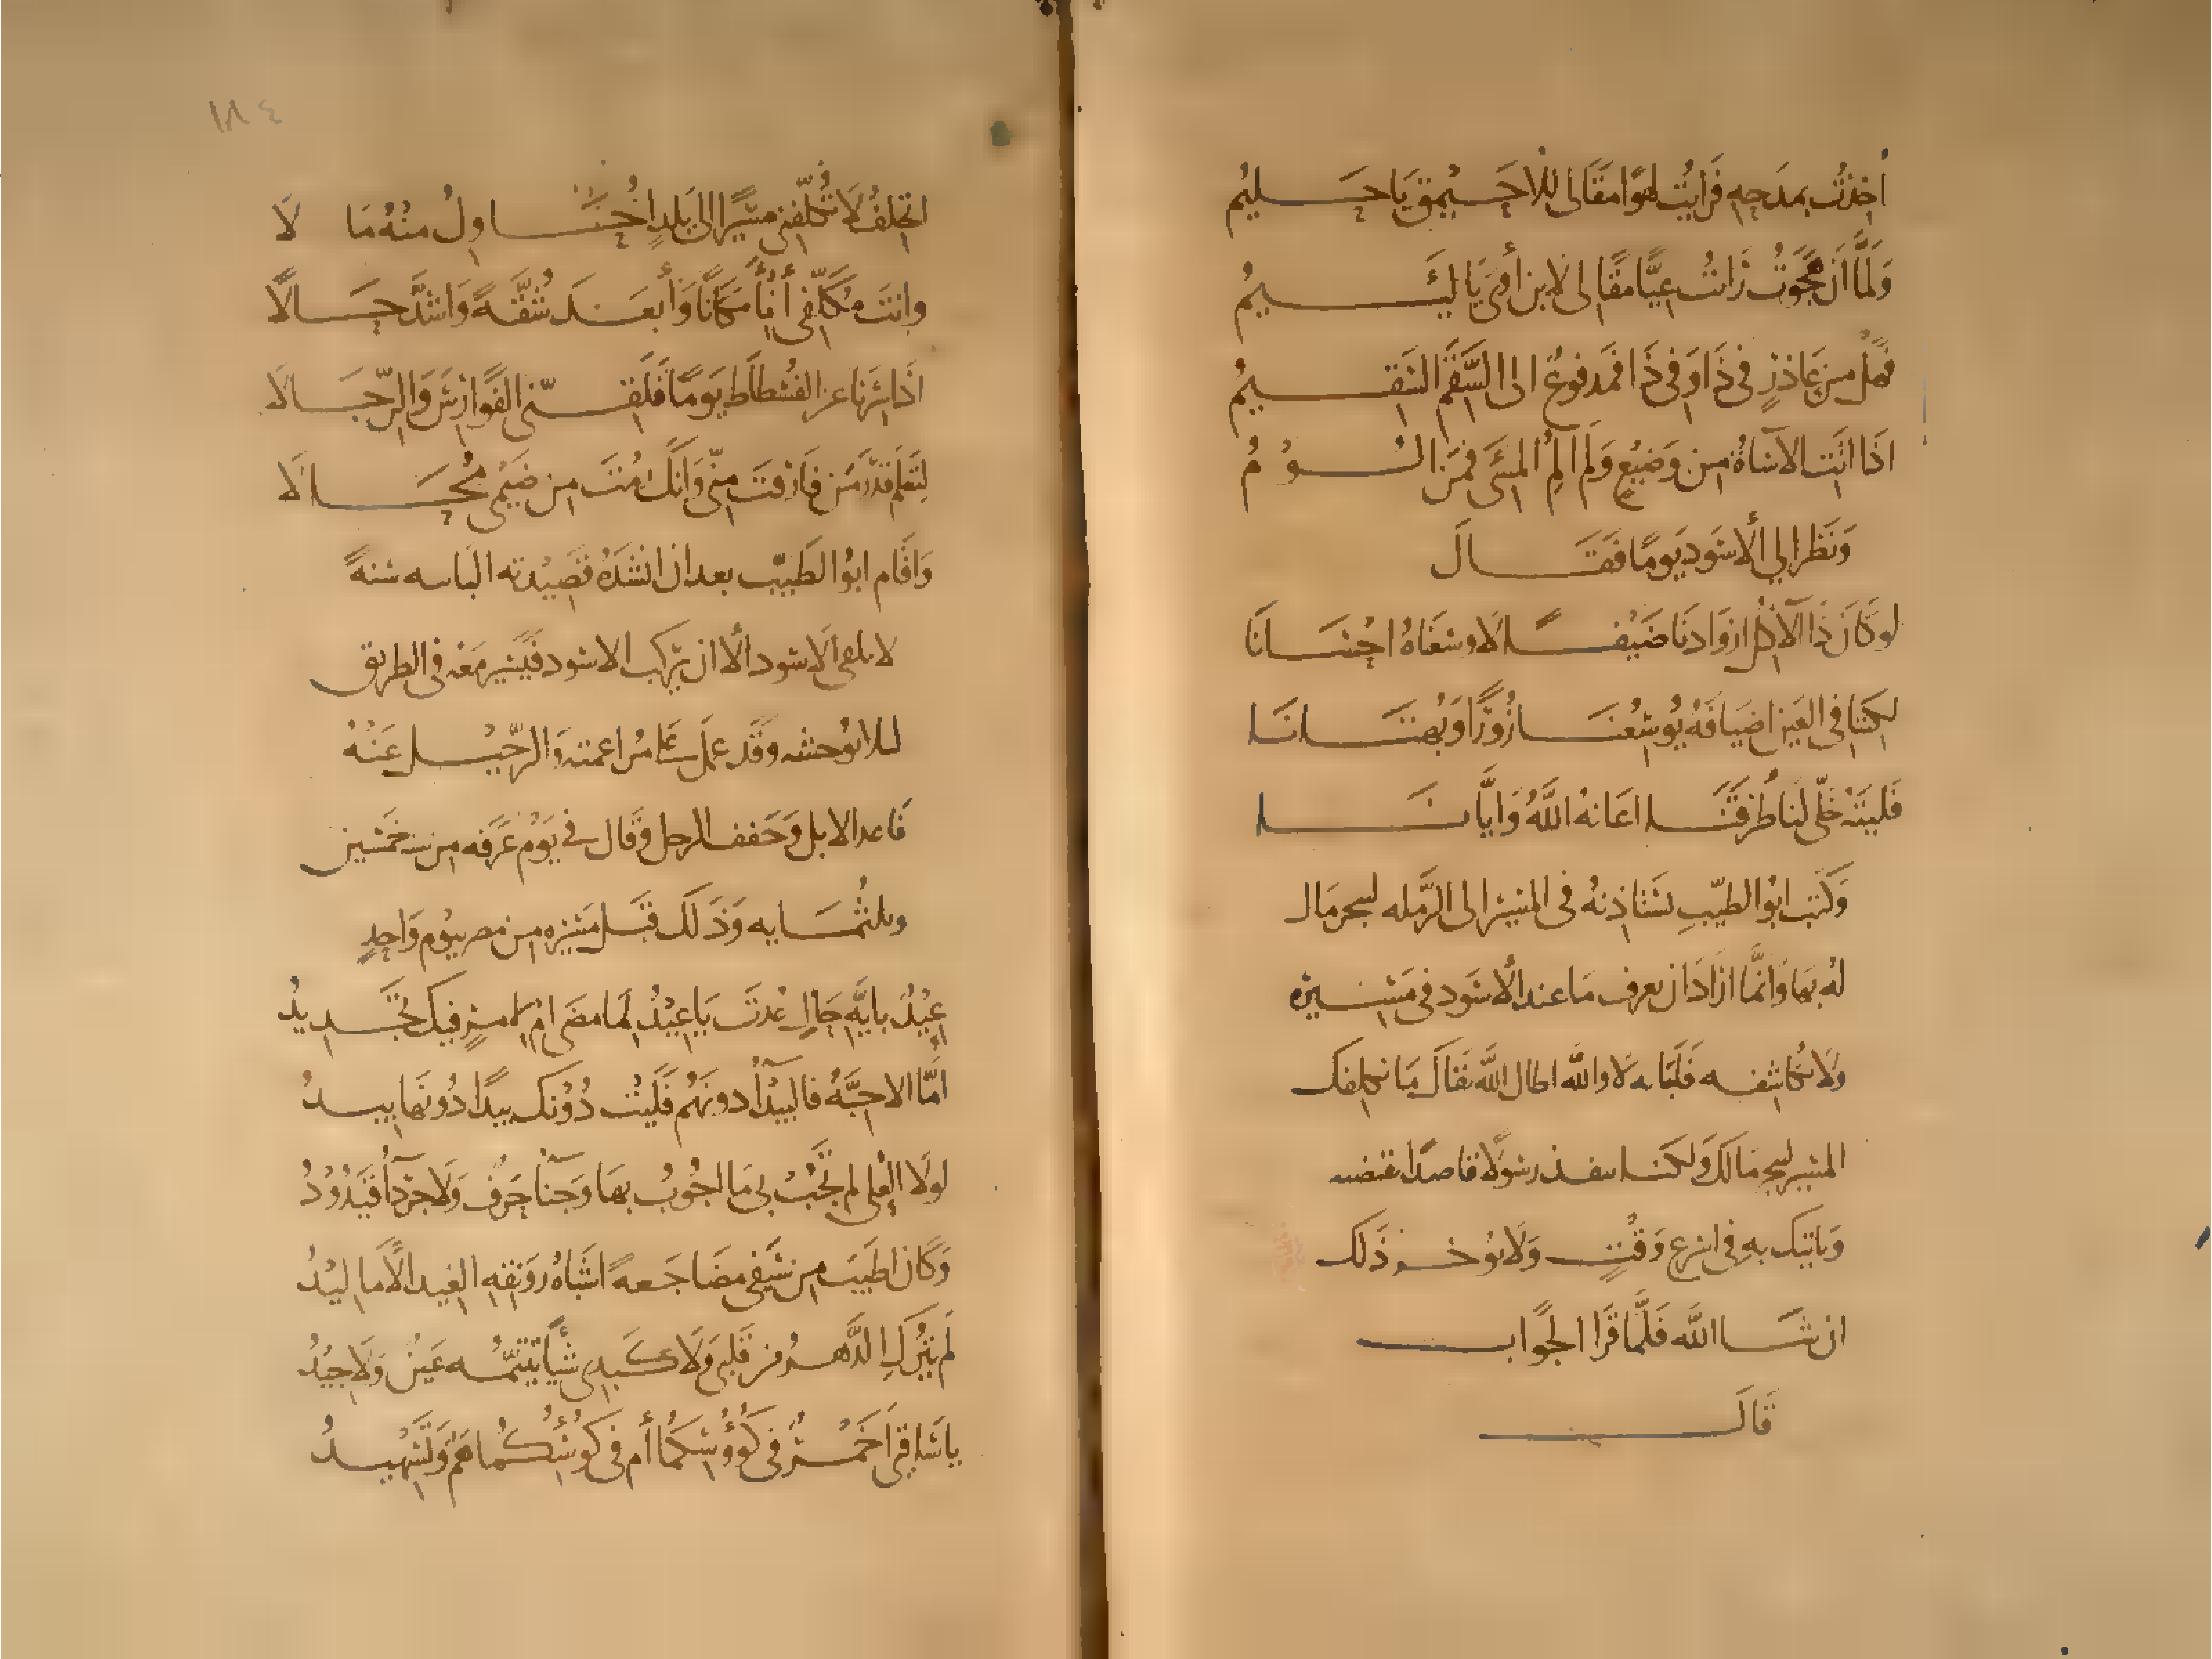 اخذتُ بمدحِهِ فَرايتُ لهوًا مقَالى للاُحَيمِقِ يَا حَليمُ
وَلمَّا أن هَجَوتُ رَاتُ عِيًّا مقَالى لابن أوى يَا لَئيمُ
فهل من عَاذرٍ في ذَا وَفي ذَا فمَدفوعٌ الى السَّقَمِ السَّقيمُ
اذَا اتَتِ الاسَاةُ من وَضيعٍ وَلم المِ المسئَ فمَن الُومُ
وَنَظر الي الأسود يَومًا فقَالَ
لو كَانَ ذَا الآكلُ ازوَادنَا ضَيفًا لاوسَعنَاهُ احسَانَا
لكننا في العَين اضيَافهُ يُوسِعُنَا زُورًا وَبُهتَانَا
فليتَهُ خَلّى لنا طُرقَنَا اعَانهُ اللَّهُ وَايَّانَا
وَكتب ابُو الطيّبِ يستَاذنهُ في المسِير الى الرَّمله ليجر مَال
لهُ بهَا وَانمَّا ارَادَ ان يعرف مَا عند الأسَود في مَسِيرِهِ
وَلا يكاشفه فَلجَابه لا وَاللَّه اطال اللَّه بقَاكَ مَا نكلفك
المسير ليجر مَالكَ وَلكنا ننفذ رسُولًا قاصدًا يقبضه
وَياتيك بهِ في اسرع وَقتٍ وَلا نوخر ذَلك
ان شَا اللَّه فَلمَّا قَرا الجَوَاب
قَالَ
١٨٤
اتحلفُ لا تُكلّفني مَسِيرًا الى بَلدٍ اُحَاولُ منهُ مَا لَا
وانتَ مُكلّفي أنبأ مَكَانًا وَأبعَدَ شُقَّةً وَاشدَّ حَالَا
اذَا سِرنَا عن الفُسطَاطِ يَومًا فَلَقّنّي الفَوَارسَ وَالرّجَالَا
لِتَعلَم قَدرَ مَن فَارَقتَ منّي وَانّكَ رُمتَ من ضَيمي مُحَالَا
وَاقَام ابُو الطَيّب بعد ان انشَدَهُ قصَيدته البَاييه سَنَةً
لا يلقى الَاسود الّا ان يَركب الاسود فَيَسير مَعَه في الطريق
لئلا يُوحشه وَقَد عملَ عَلى مُراغمته وَالرَحيل عَنْهُ
فَاعد الابل وَخَفف الرحل وَقَال في يَوم عَرَفه من سنه خَمسين
وثلثمَايه وَذَلك قَبلَ مَسِيرِهِ من مصر بيُوم وَاحِدٍ
عِيدٌ بايَّةِ حَالٍ عُدتَ يَا عِيدُ لِمَا مضَى ام لامرٍ فيكَ تَجديدُ
امَّا الاحبَّةُ فالبَيدَآُ دونهُم فَليتَ دُونَك بيدًا دُونَهَا بيدُ
لولَا العُلى لم تَجُب بي مَا اجُوبُ بهَا وَجنَآُ حَرفٌ وَلَا جَردآُ قَيدُودُ
وَكَانَ اطيَبَ من سَيفي مضَاجَعةً اشبَاهُ رَونَقِهِ الغِيدُ الأمَاليدُ
لَم يتركِ الدَّهرُ من قَلبي وَلَا كَبدي شيأً تُتيّمُه عَينٌ وَلَا جِيدُ
يا سَاقِيَيَّ اَخَمرٌ في كُؤُوسِكمَا أم في كُؤُوسِكُما هَمٌّ وَتَسهيدُ